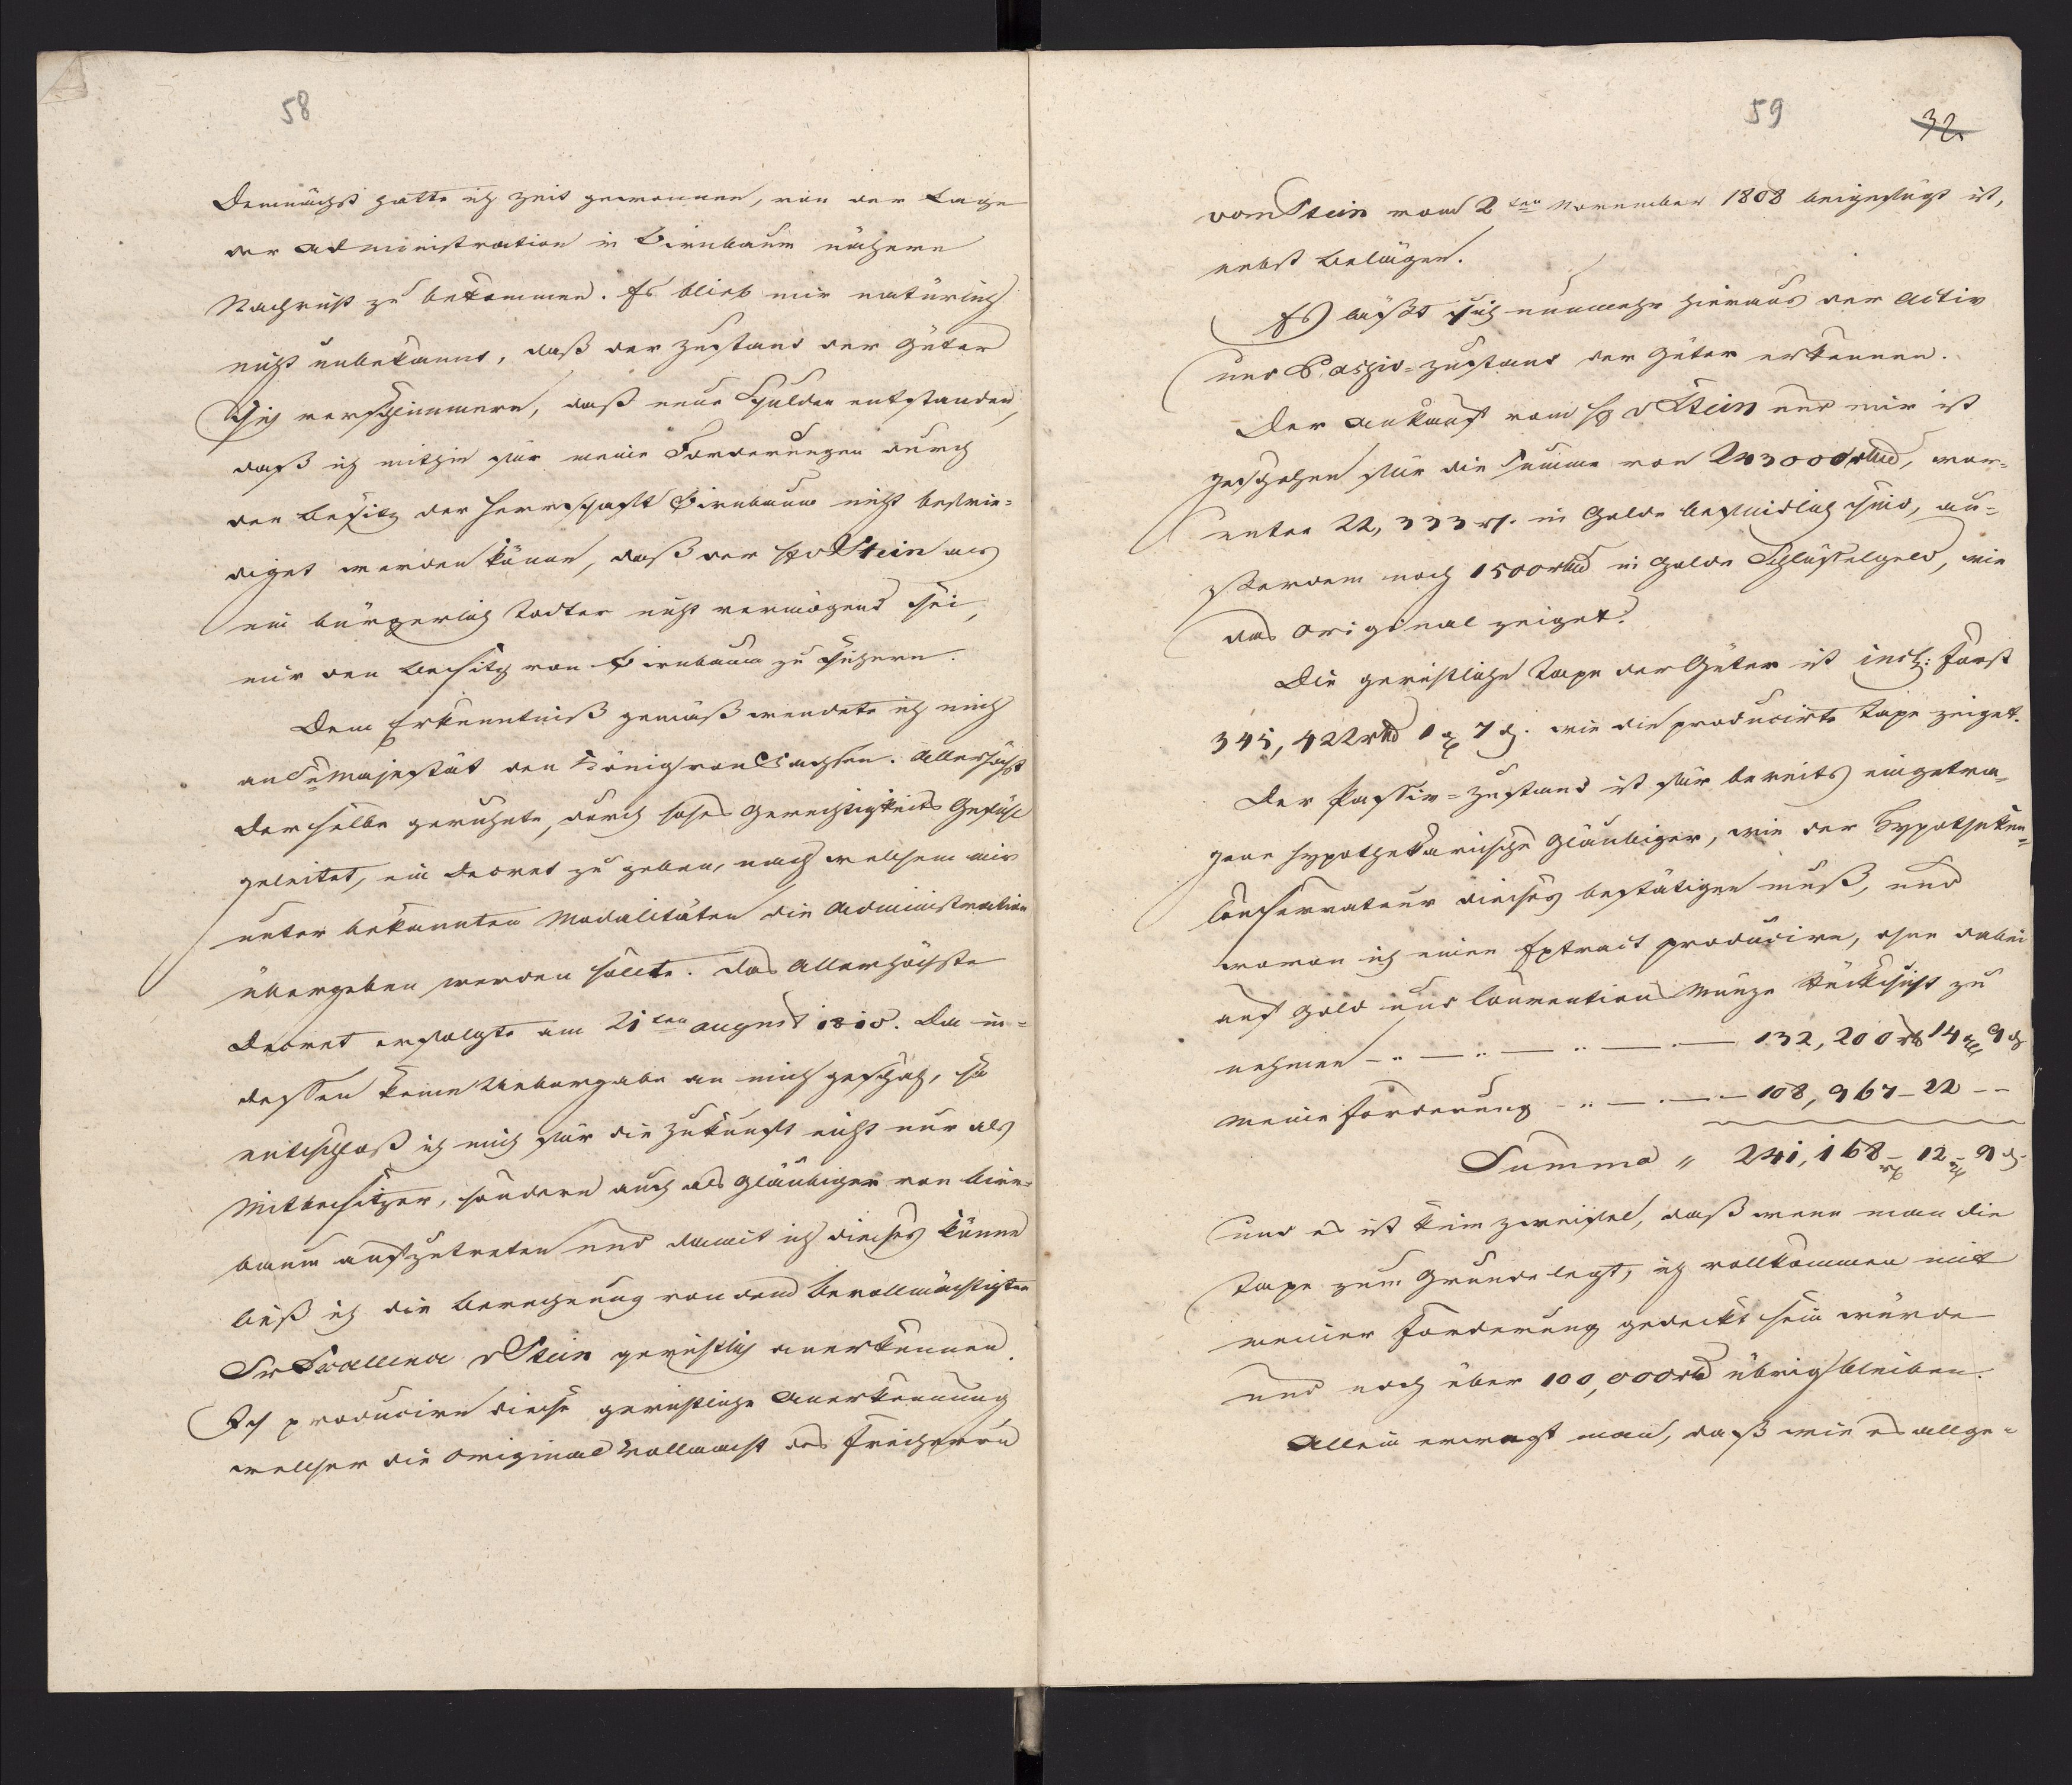 58
Demnächst hatte ich Zeit gewonnen, von der Lage
der Administration in Birnbaum nähere
Nachricht zu bekommen. Es blieb mir natürlich
nicht unbekannt, daß der Zustand der Güter
sich verschlimmere, daß neue Schulden entstanden,
daß ich mithin für meine Forderungen durch
den Besitz der Herrschaft Birnbaum nicht befrie=
diget werden könne, daß der H v Stein als
ein bürgerlich Todter nicht vermögend sei,
mir den Besitz von Birnbaum zu sichern.
Dem Erkenntniß gemäß wendete ich mich
an Se Majestät den König von Sachsen. Allerhöchst
derselbe geruhete, durch hohes Gerechtigkeits Gefühl
geleitet, ein Decret zu geben, nach welchem mir
unter bekannten Modalitäten die Administration
übergeben werden sollte. Das Allerhöchste
Decret erfolgte am 21ten August 1810. Da in=
dessen keine Uebergabe an mich geschah, so
entschloß ich mich für die Zukunft nicht nur als
Mitbesitzer, sondern auch als Gläubiger von Birn=
baum aufzutreten und damit ich dieses könne
ließ ich die Berechnung von dem Bevollmächtigten
Sr Excellenz v Stein gerichtlich anerkennen.
Ich producire diese gerichtliche Anerkennung
welcher die Original Vollmacht des Freiherrn
59
32
vom Stein vom 2ten November 1808 beigefügt ist,
nebst Belägen.
Es läßt sich nunmehr hieraus der Activ
und Passiv=Zustand der Güter erkennen.
Der Ankauf vom H v Stein und mir ist
geschehen für die Summe von 243000 rthd, wor=
unter 22,333 rt. in Golde befindlich sind, au=
ßerdem noch 1500 rthd in Golde Schlüsselgeld, wie
das Original zeiget.
Die gerichtliche Taxe der Güter ist incl: Forst
345,422 rthd 1 g 7 d. wie die producirte Taxe zeiget.
Der Passiv=Zustand ist für bereits eingetra=
gene hypothekarische Gläubiger, wie der Hypotheken=
Conservateur dieses bestätigen muß, und
wovon ich einen Extract producire, ohne dabei
auf Gold und Convention Münze Rücksicht zu
nehmen — " — " — " — — 132,200 rt 14 g 9 d
Meine Forderung — " — — — 108,967 — 22 — —
Summa " 241,168 — 12 — 9 d.
und es ist kein Zweifel, daß wenn man die
Taxe zum Grunde legt, ich vollkommen mit
meiner Forderung gedeckt sein würde
und noch über 100,000 rtd übrig bleiben.
Allein erwegt man, daß wie es allge=